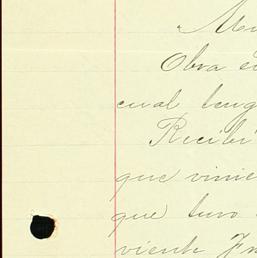 Obra e
cual leng
Recibi
que vinie
que tuvo
viente Fr